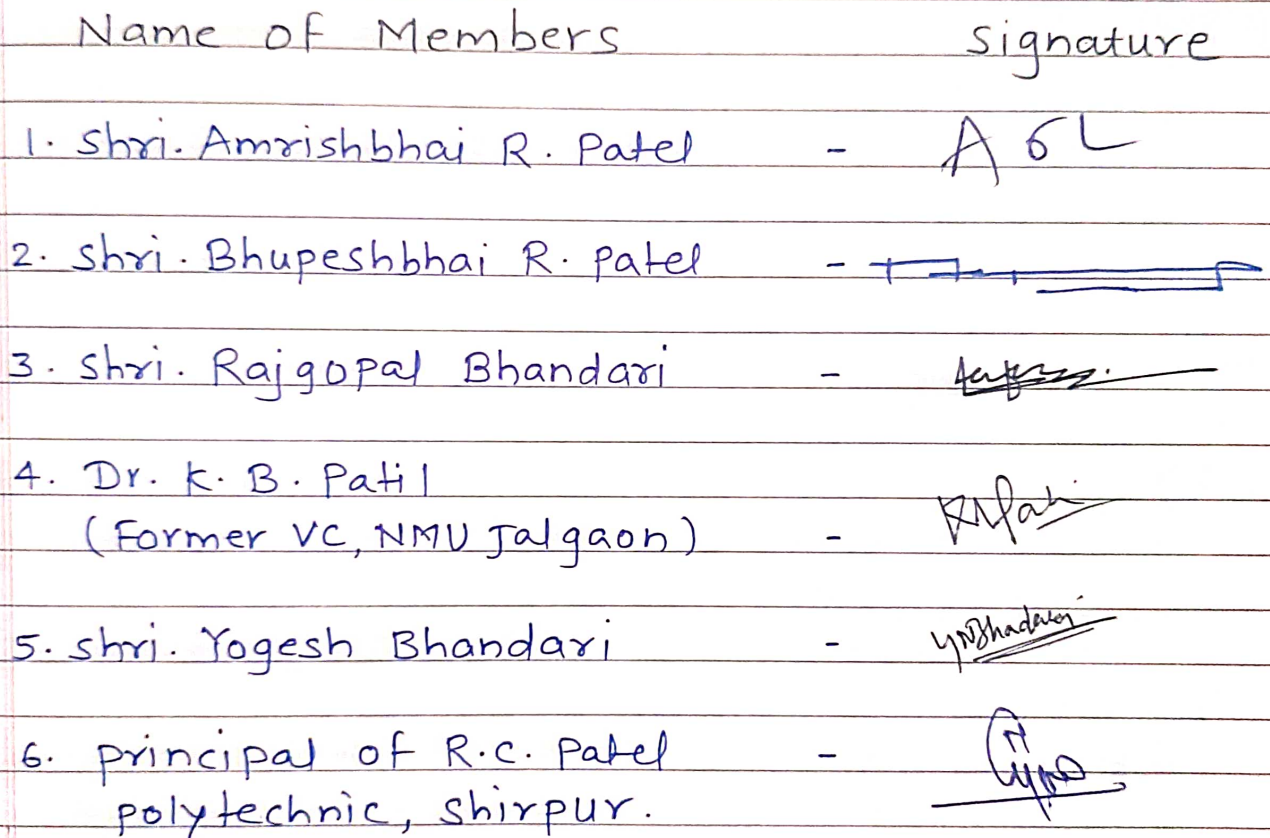 Name of Members Signature
1. Shri. Amrishbhai R. Patel -
2. Shri. Bhupeshbhai R. Patel -
3. Shri. Rajgopal Bhandari -
4. Dr. K. B. Patil
(Former VC, NMU Jalgaon) -
5. Shri. Yogesh Bhandari - YNBhandari
6. principal of R.C. Patel -
polytechnic, Shirpur.